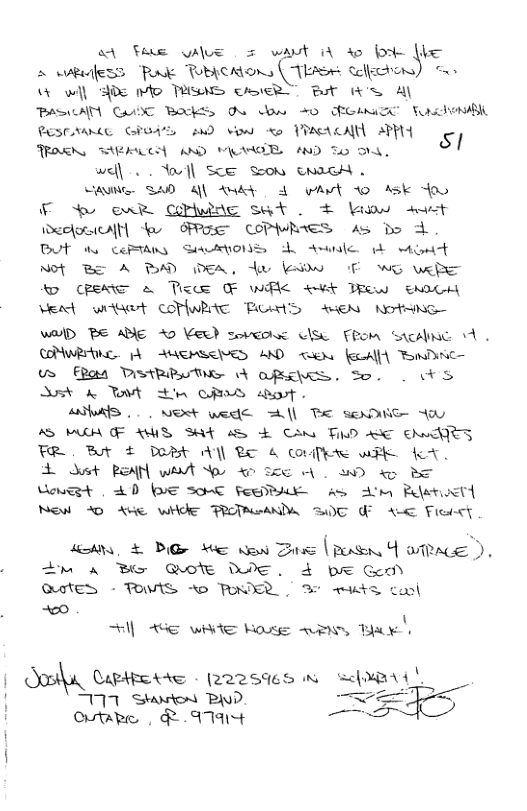 AT FACE VALUE I WANT IT TO LOOK LIKE
A HARMLESS PUNK PUBLICATION (TRASH COLLECTION) SO
IT WILL SLIDE INTO PRISONS EASIER. BUT IT'S All
BASICAlly GUIDE BOOKS ON HOW TO ORGANIZE FUNCTIONABLE
RESISTANCE GROUPS AND HOW TO PRACTICAlly APPLY
PROVEN STRATEGY AND METHODS AND SO ON.
51
WEll... YOU'll SEE SOON ENOUGH.
HAVING SAID All THAT. I WANT TO ASK YOU
IF YOU EVER COPYWRITE SHIT. I KNOW THAT
IDEOLOGICAlly YOU OPPOSE COPYWRITES AS DO I.
BUT IN CERTAIN SITUATIONS I THINK IT MIGHT
NOT BE A BAD IDEA. YOU KNOW IF WE WERE
TO CREATE A PIECE OF WORK THAT DREW ENOUGH
HEAT WITHOUT COPYWRITE RIGHTS THEN NOTHING
WOULD BE ABLE TO KEEP SOMEONE ELSE FROM STEALING IT.
COPYWRITING IT THEMSELVES AND THEN LEGAlly BINDING
US FROM DISTRIBUTING IT OURSELVES. SO... IT'S
JUST A POINT I'M CURIOUS ABOUT.
ANYWAYS... NEXT WEEK I'll BE SENDING YOU
AS MUCH OF THIS SHIT AS I CAN FIND THE ENVELOPES
FOR. BUT I DOUBT IT'll BE A COMPLETE WORK YET.
I JUST REAlly WANT YOU TO SEE IT. AND TO BE
HONEST. I'D LOVE SOME FEEDBACK AS I'M RELATIVELY
NEW TO THE WHOLE PROPAGANDA SIDE OF THE FIGHT.
AGAIN, I DIG THE NEW ZINE (REASON 4 OUTRAGE).
I'M A BIG QUOTE DUDE. I LOVE GOOD
QUOTES - POINTS TO PONDER. SO THATS COOL
TOO.
TIll THE WHITE HOUSE TURNS BLACK!
JOSHUA CARTRETTE - 12225965 IN SOLIDARITY!
777 STANTON BLVD.
ONTARIO, OR. 97914